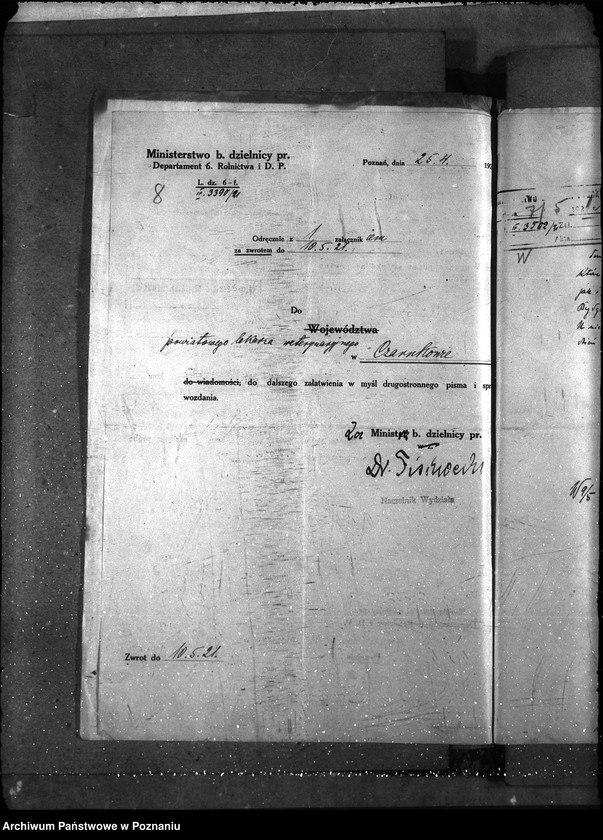 Ministerstwo b. dzielnicy pr.
Departament 6. Rolnictwa i D. P.
L. dz. 6-f.
8
3398/21
Poznań, dnia 25.4. 192
Odręcznie z 1 załącznikiem
za zwrotem do 10.5.21.
Do
Województwa
powiatowego lekarza weterynaryjnego
w Czarnkowie
do wiadomości, do dalszego załatwienia w myśl drugostronnego pisma i spr
wozdania.
Za Ministra b. dzielnicy pr.
Dr.
Naczelnik Wydziału
Zwrot do 10.5.21.
7/5
3502/21
W
jak
W 9/5
Archiwum Państwowe w Poznaniu